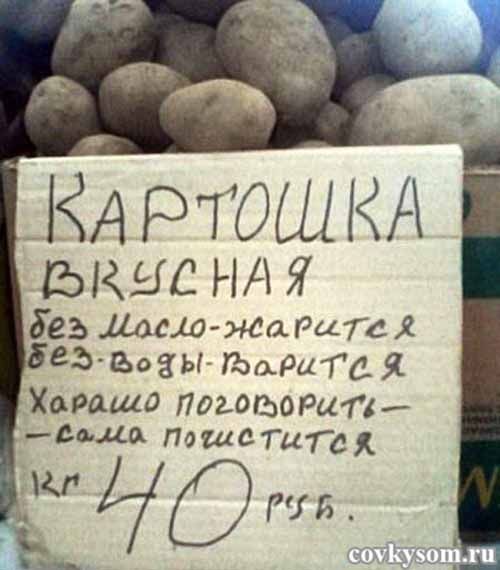 КАРТОШКА
ВКУСНАЯ
без Масло-жарится
без-воды-варится
Харашо поговорить-
-сама почистится
кг 40 руб.
covkysom.ru